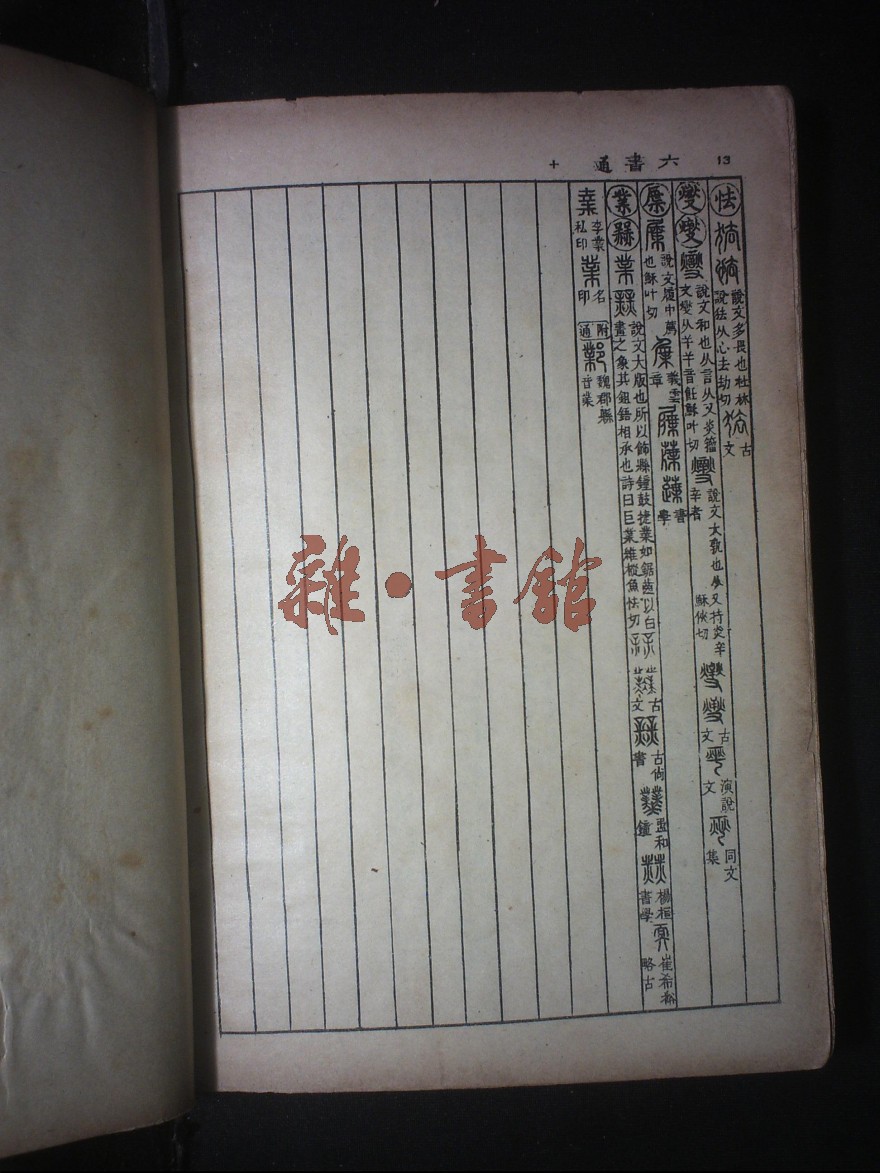 六書通 十 13
怯 說文多畏也杜林說狜从心去劫切 古文
燮 說文和也从言从又炎籀文燮从羊羊音飪穌叶切 說文大孰也从又持炎辛辛者 穌俠切 古文 演說文 同文集
屧 說文履中薦也穌叶切 義雲章 書學
業 說文大版也所以飾縣鐘鼓捷業如鋸齒以白畫之象其鉏鋙相承也詩曰巨業維樅魚怯切 古文 古尚書 盄和鐘 楊桓書學 崔希裕略古
李業私印 名印 附通 鄴 魏郡縣音業
雜·書館